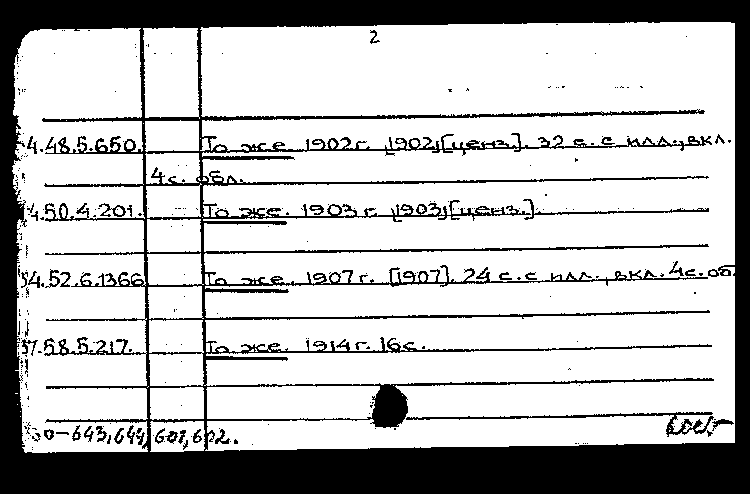 2
4.48.5.650. То же. 1902 г. [1902][ценз.]. 32 с. с илл., вкл.
4 с. обл.
4.50.4.201. То же. 1903 г. [1903][ценз.].
54.52.6.1366 То же. 1907 г. [1907]. 24 с. с илл., вкл. 4 с. об.
57.58.5.217. То же. 1914 г. 16 с.
50-643,644,601,602.